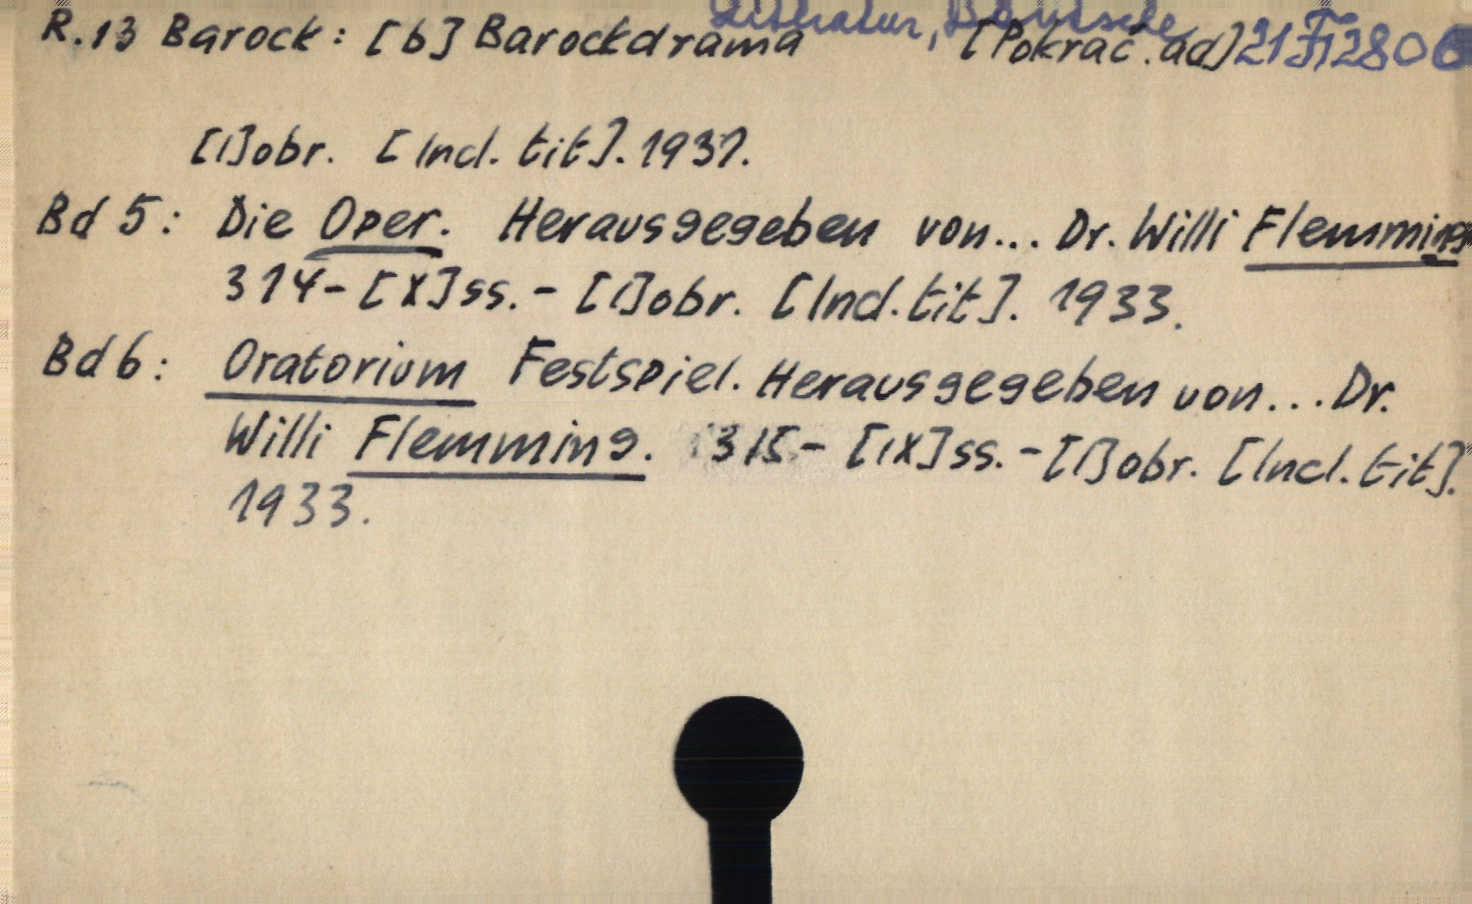 Literatur, Deutsche
R.13 Barock: [b] Barockdrama [Pokrač. ad] 21 F 2806
[1] obr. [Incl. tit]. 1931.
Bd 5: Die Oper. Herausgegeben von... Dr. Willi Flemming
314-[X] ss. - [1] obr. [Incl. tit]. 1933.
Bd 6: Oratorium Festspiel. Herausgegeben von... Dr.
Willi Flemming. 315- [IX] ss. - [1] obr. [Incl. tit].
1933.